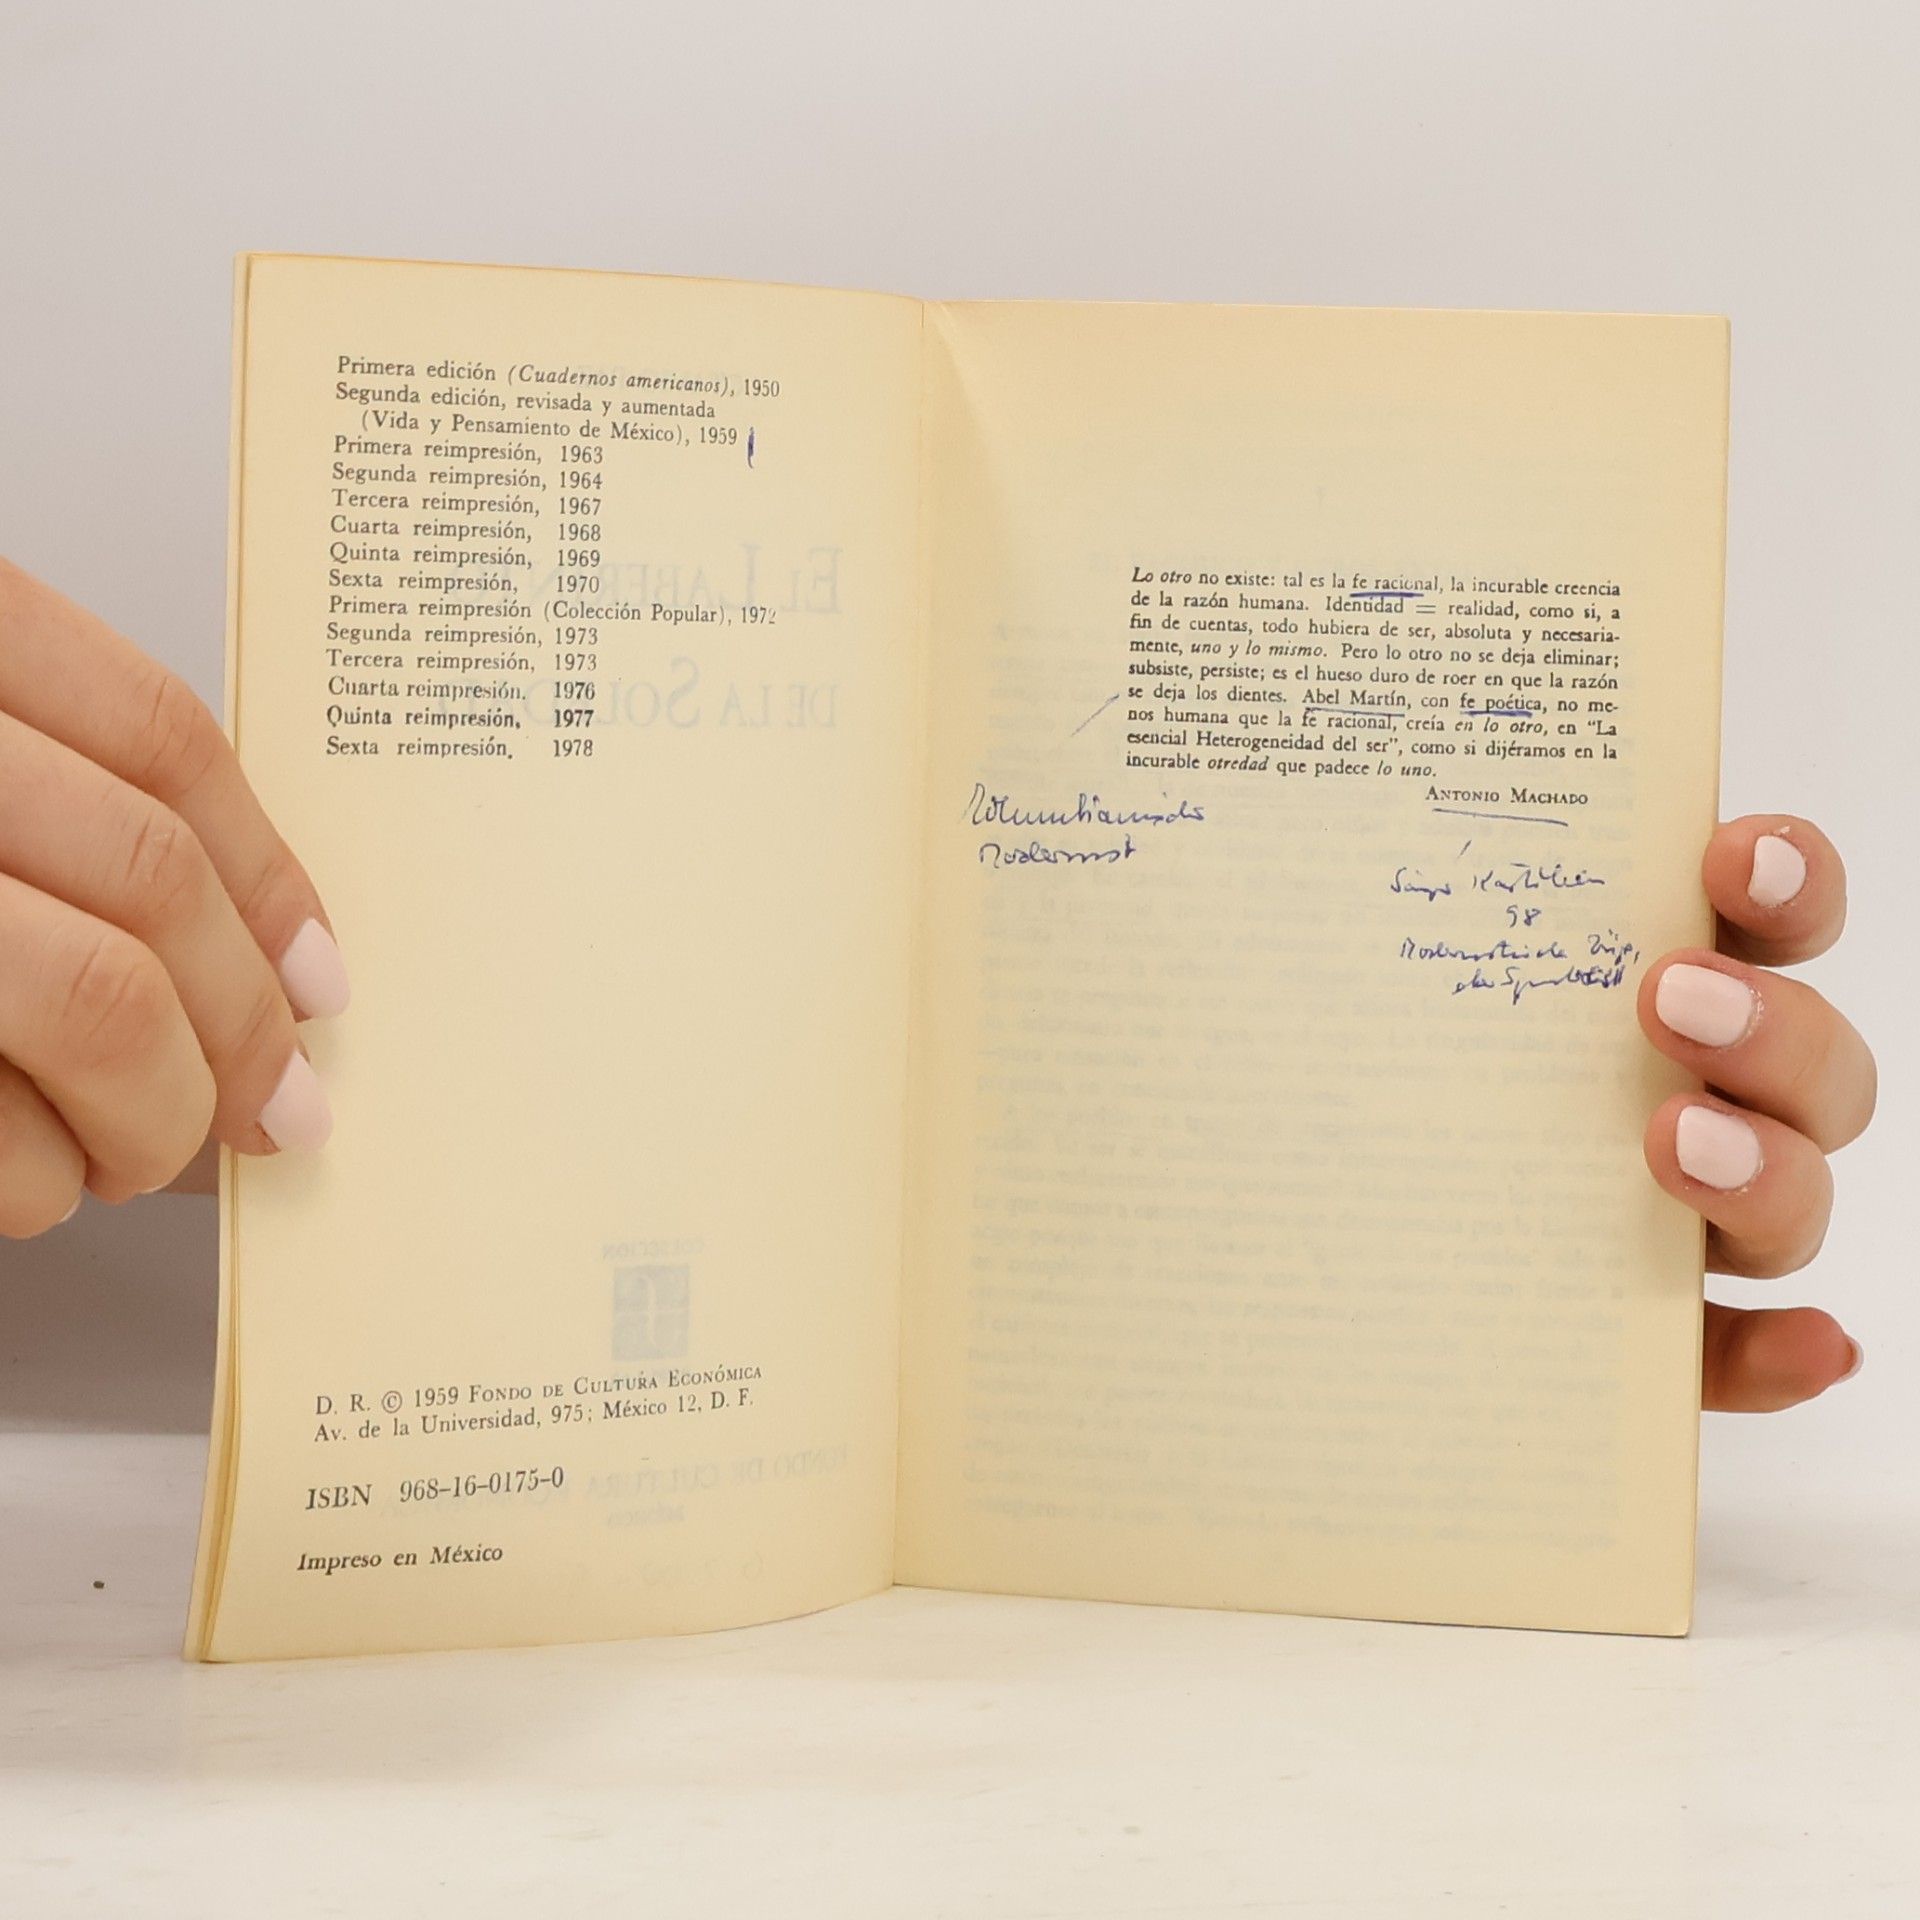 Primera edición (Cuadernos americanos), 1950
Segunda edición, revisada y aumentada
(Vida y Pensamiento de México), 1959
Primera reimpresión, 1963
Segunda reimpresión, 1964
Tercera reimpresión, 1967
Cuarta reimpresión, 1968
Quinta reimpresión, 1969
Sexta reimpresión, 1970
Primera reimpresión (Colección Popular), 1972
Segunda reimpresión, 1973
Tercera reimpresión, 1973
Cuarta reimpresión. 1976
Quinta reimpresión, 1977
Sexta reimpresión. 1978
D. R. © 1959 FONDO DE CULTURA ECONÓMICA
Av. de la Universidad, 975; México 12, D. F.
ISBN 968-16-0175-0
Impreso en México
Lo otro no existe: tal es la fe racional, la incurable creencia
de la razón humana. Identidad = realidad, como si, a
fin de cuentas, todo hubiera de ser, absoluta y necesaria-
mente, uno y lo mismo. Pero lo otro no se deja eliminar;
subsiste, persiste; es el hueso duro de roer en que la razón
se deja los dientes. Abel Martín, con fe poética, no me-
nos humana que la fe racional, creía en lo otro, en "La
esencial Heterogeneidad del ser", como si dijéramos en la
incurable otredad que padece lo uno.
ANTONIO MACHADO
Modernist
98